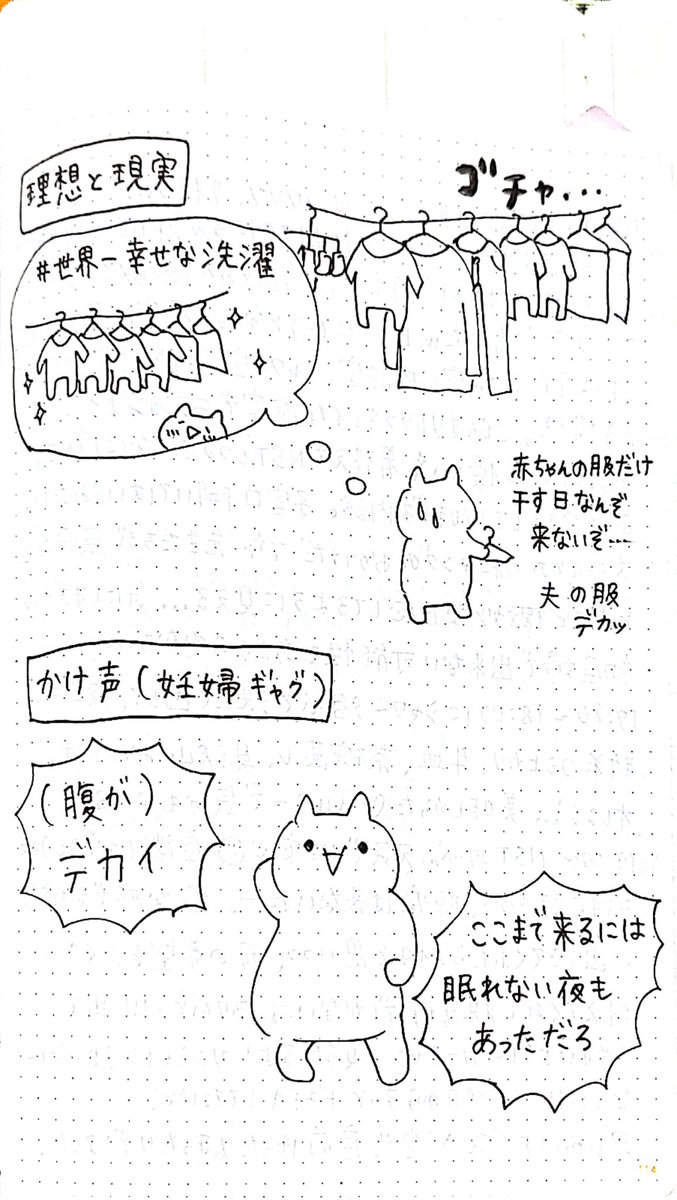 理想と現実
#世界一幸せな洗濯
ゴチャ...
赤ちゃんの服だけ
干す日なんぞ
来ないぞ...
夫の服
デカッ
かけ声(妊婦ギャグ)
(腹が)
デカイ
ここまで来るには
眠れない夜も
あっただろ
114